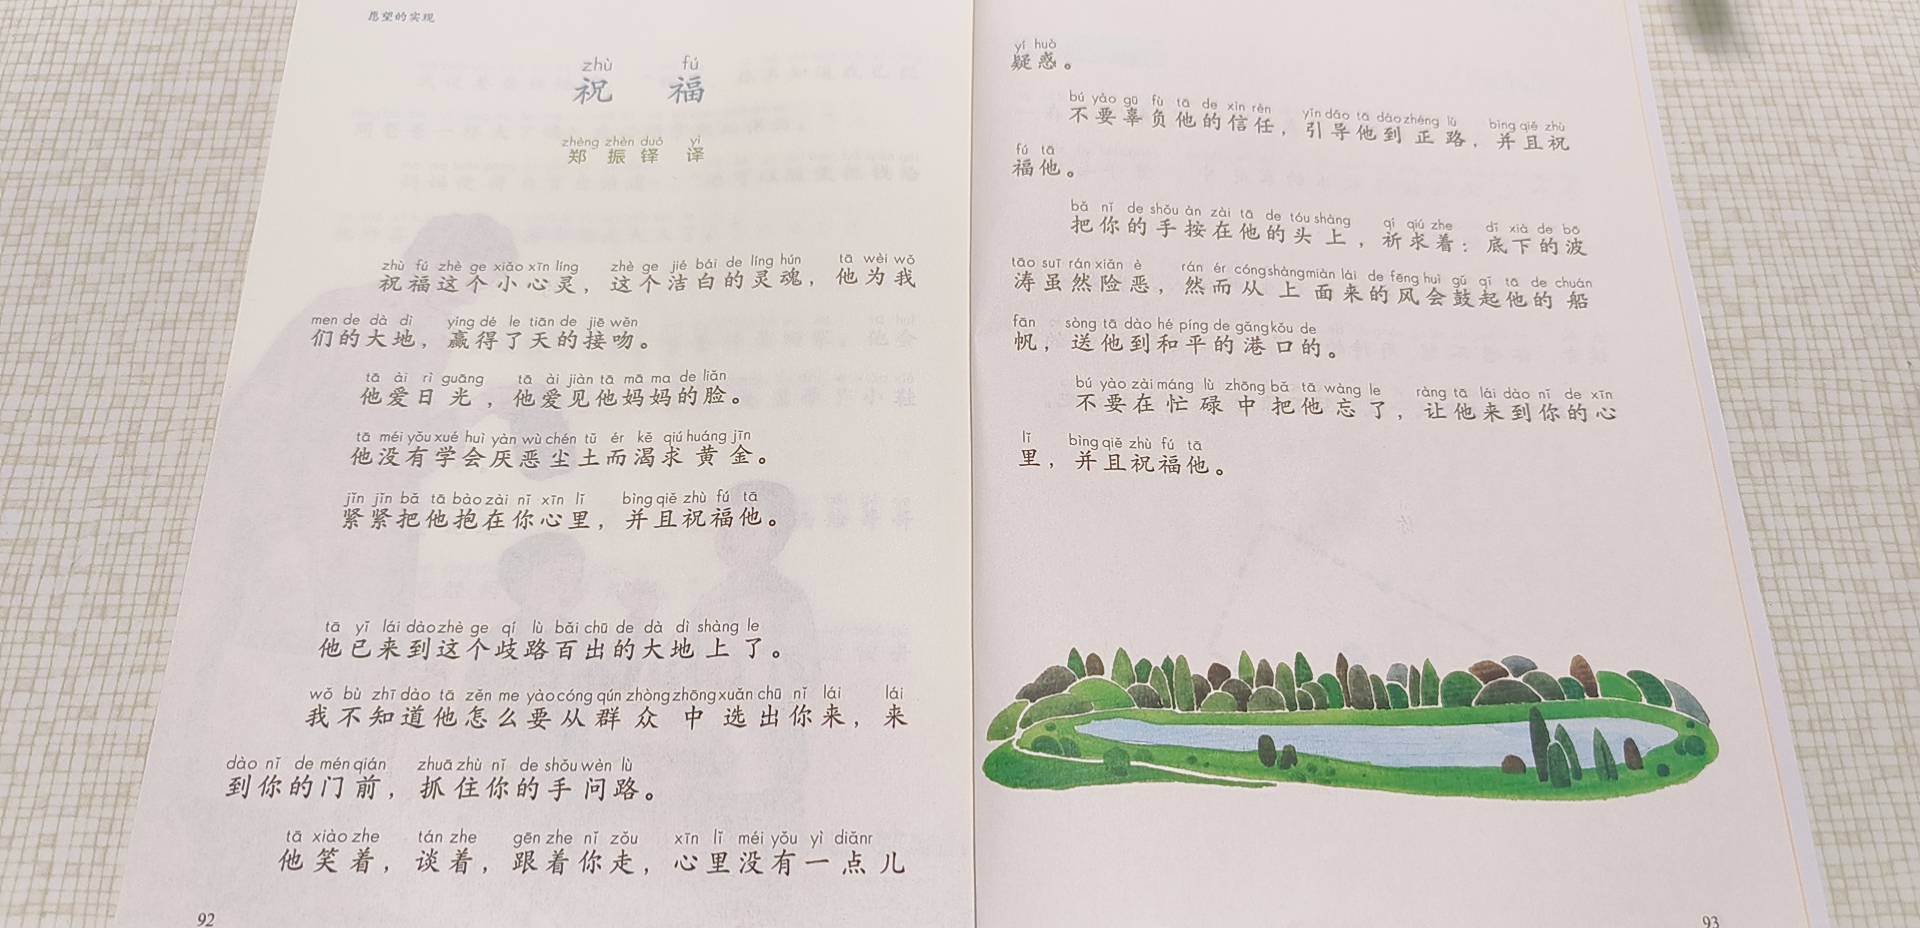 愿望的实现
zhù fú
祝 福
zhèng zhèn duó yì
郑振铎 译
zhù fú zhè ge xiǎo xīn líng zhè ge jié bái de líng hún tā wèi wǒ
祝福这个小心灵，这个洁白的灵魂，他为我
men de dà dì yíng dé le tiān de jiē wěn
们的大地，赢得了天的接吻。
tā ài rì guāng tā ài jiàn tā mā ma de liǎn
他爱日光，他爱见他妈妈的脸。
tā méi yǒu xué huì yàn wù chén tǔ ér kě qiú huáng jīn
他没有学会厌恶尘土而渴求黄金。
jǐn jǐn bǎ tā bào zài nǐ xīn lǐ bìng qiě zhù fú tā
紧紧把他抱在你心里，并且祝福他。
tā yǐ lái dào zhè ge qí lù bǎi chū de dà dì shàng le
他已来到这个歧路百出的大地上了。
wǒ bù zhī dào tā zěn me yào cóng qún zhòng zhōng xuǎn chū nǐ lái lái
我不知道他怎么要从群众中选出你来，来
dào nǐ de mén qián zhuā zhù nǐ de shǒu wèn lù
到你的门前，抓住你的手问路。
tā xiào zhe tán zhe gēn zhe nǐ zǒu xīn lǐ méi yǒu yì diǎnr
他笑着，谈着，跟着你走，心里没有一点儿
92
yí huò
疑惑。
bú yào gū fù tā de xìn rèn yǐn dǎo tā dào zhèng lù bìng qiě zhù
不要辜负他的信任，引导他到正路，并且祝
fú tā
福他。
bǎ nǐ de shǒu àn zài tā de tóu shàng qí qiú zhe dǐ xià de bō
把你的手按在他的头上，祈求着：底下的波
tāo suī rán xiǎn è rán ér cóng shàng miàn lái de fēng huì gǔ qǐ tā de chuán
涛虽然险恶，然而从上面来的风会鼓起他的船
fān sòng tā dào hé píng de gǎng kǒu de
帆，送他到和平的港口的。
bú yào zài máng lù zhōng bǎ tā wàng le ràng tā lái dào nǐ de xīn
不要在忙碌中把他忘了，让他来到你的心
lǐ bìng qiě zhù fú tā
里，并且祝福他。
93